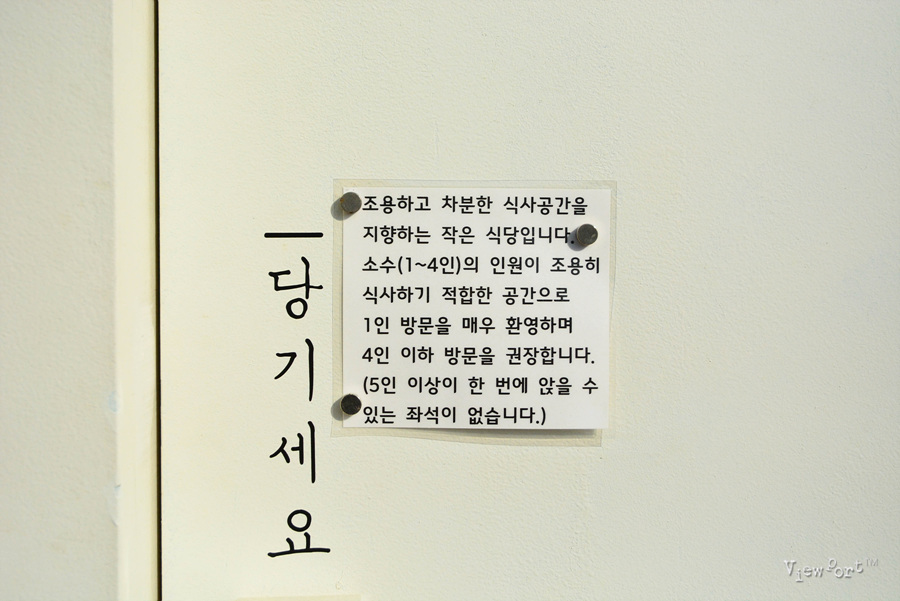 당기세요
조용하고 차분한 식사공간을
지향하는 작은 식당입니다.
소수(1~4인)의 인원이 조용히
식사하기 적합한 공간으로
1인 방문을 매우 환영하며
4인 이하 방문을 권장합니다.
(5인 이상이 한 번에 앉을 수
있는 좌석이 없습니다.)
Viewport™